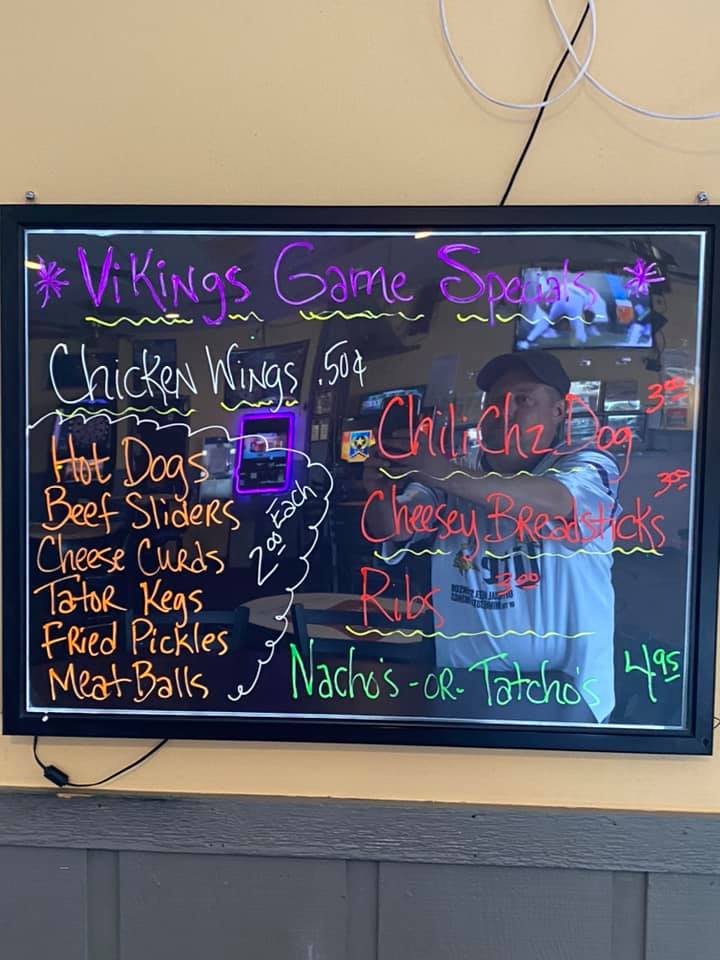 * Vikings Game Specials *
Chicken Wings .50¢
Hot Dogs
Beef Sliders
Cheese Curds
Tator Kegs
Fried Pickles
Meat Balls
2.00 Each
Chili Chz Dog 3.00
Cheesey Breadsticks 3.00
Ribs 3.00
Nacho's -OR- Tatcho's 4.95